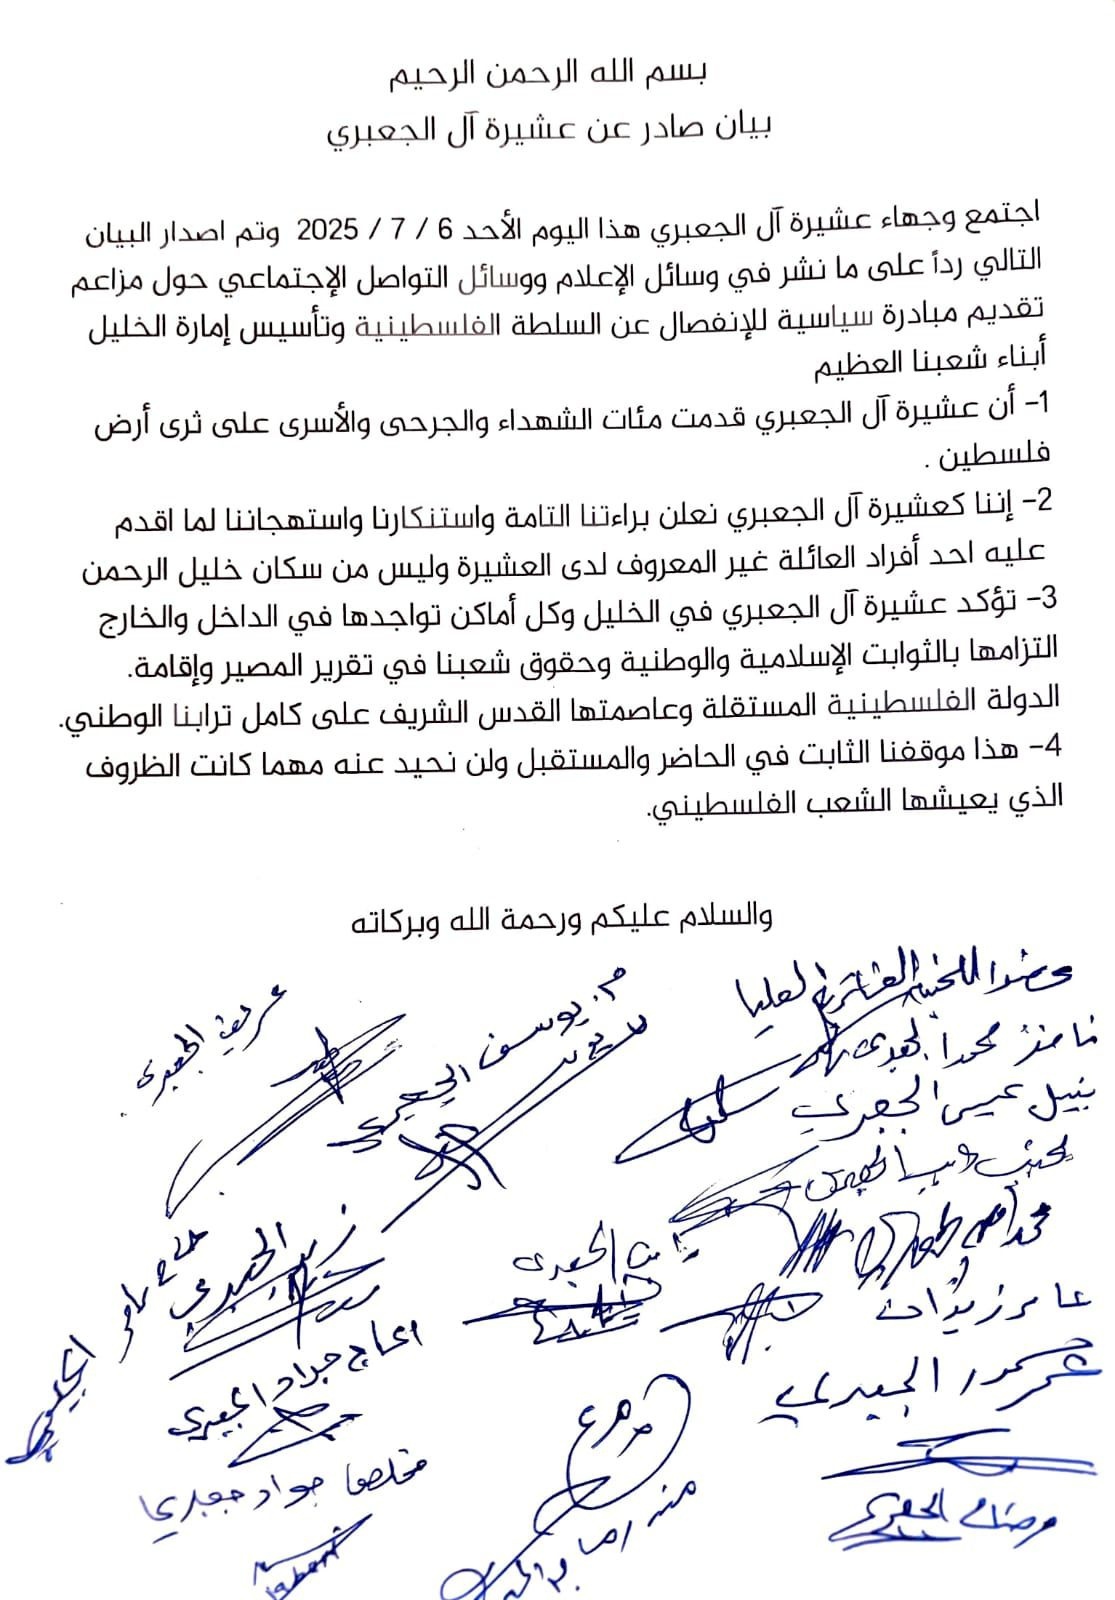 بسم الله الرحمن الرحيم
بيان صادر عن عشيرة آل الجعبري
اجتمع وجهاء عشيرة آل الجعبري هذا اليوم الأحد 6 / 7 / 2025 وتم اصدار البيان
التالي رداً على ما نشر في وسائل الإعلام ووسائل التواصل الإجتماعي حول مزاعم
تقديم مبادرة سياسية للإنفصال عن السلطة الفلسطينية وتأسيس إمارة الخليل
أبناء شعبنا العظيم
1- أن عشيرة آل الجعبري قدمت مئات الشهداء والجرحى والأسرى على ثرى أرض
فلسطين .
2- إننا كعشيرة آل الجعبري نعلن براءتنا التامة واستنكارنا واستهجاننا لما اقدم
عليه احد أفراد العائلة غير المعروف لدى العشيرة وليس من سكان خليل الرحمن
3- تؤكد عشيرة آل الجعبري في الخليل وكل أماكن تواجدها في الداخل والخارج
التزامها بالثوابت الإسلامية والوطنية وحقوق شعبنا في تقرير المصير وإقامة.
الدولة الفلسطينية المستقلة وعاصمتها القدس الشريف على كامل ترابنا الوطني.
4- هذا موقفنا الثابت في الحاضر والمستقبل ولن نحيد عنه مهما كانت الظروف
الذي يعيشها الشعب الفلسطيني.
والسلام عليكم ورحمة الله وبركاته
العليا
م. يوسف الجعبري
الجعبري
نبيل عيسى الجعبري
الجعبري
عامر زيدات
الحاج جواد الجعبري
الجعبري
جواد جعبري
الجعبري